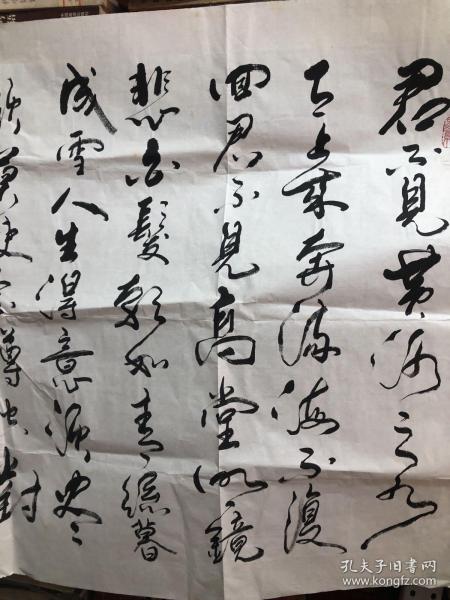 君不見黃河之水
天上来奔流海不復
回君不見高堂明鏡
悲白髮朝如青絲暮
成雪人生得意須尽
歡莫使金樽空對
孔夫子旧书网
www.kongfz.com